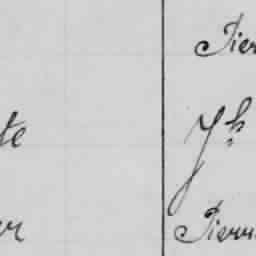 Pier
te Jh
er Pierr